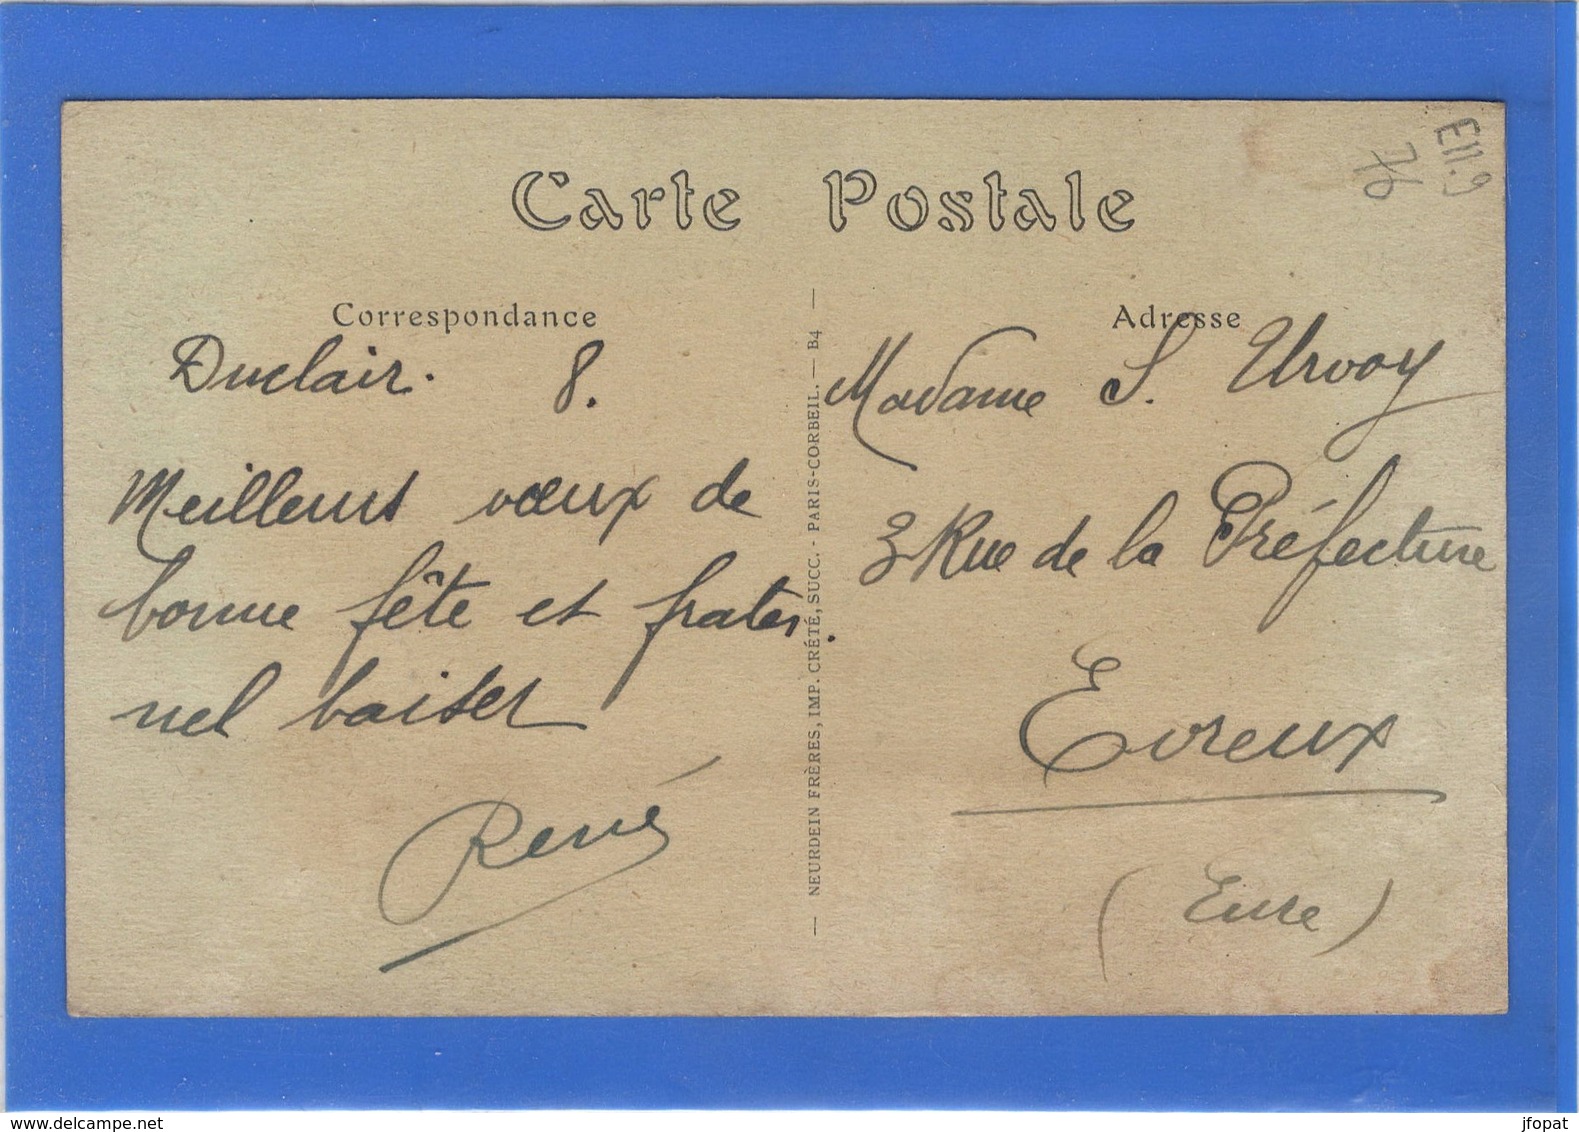 Carte Postale
E11.9
76
Correspondance
Duclair. 8.
Meilleurs vœux de
bonne fête et frater.
nel baiser
René
— NEURDEIN FRÈRES, IMP. CRÉTÉ, SUCC. - PARIS-CORBEIL. — B4 —
Adresse
Madame S. Urvoy
3 Rue de la Préfecture
Evreux
(Eure)
www.delcampe.net
jfopat